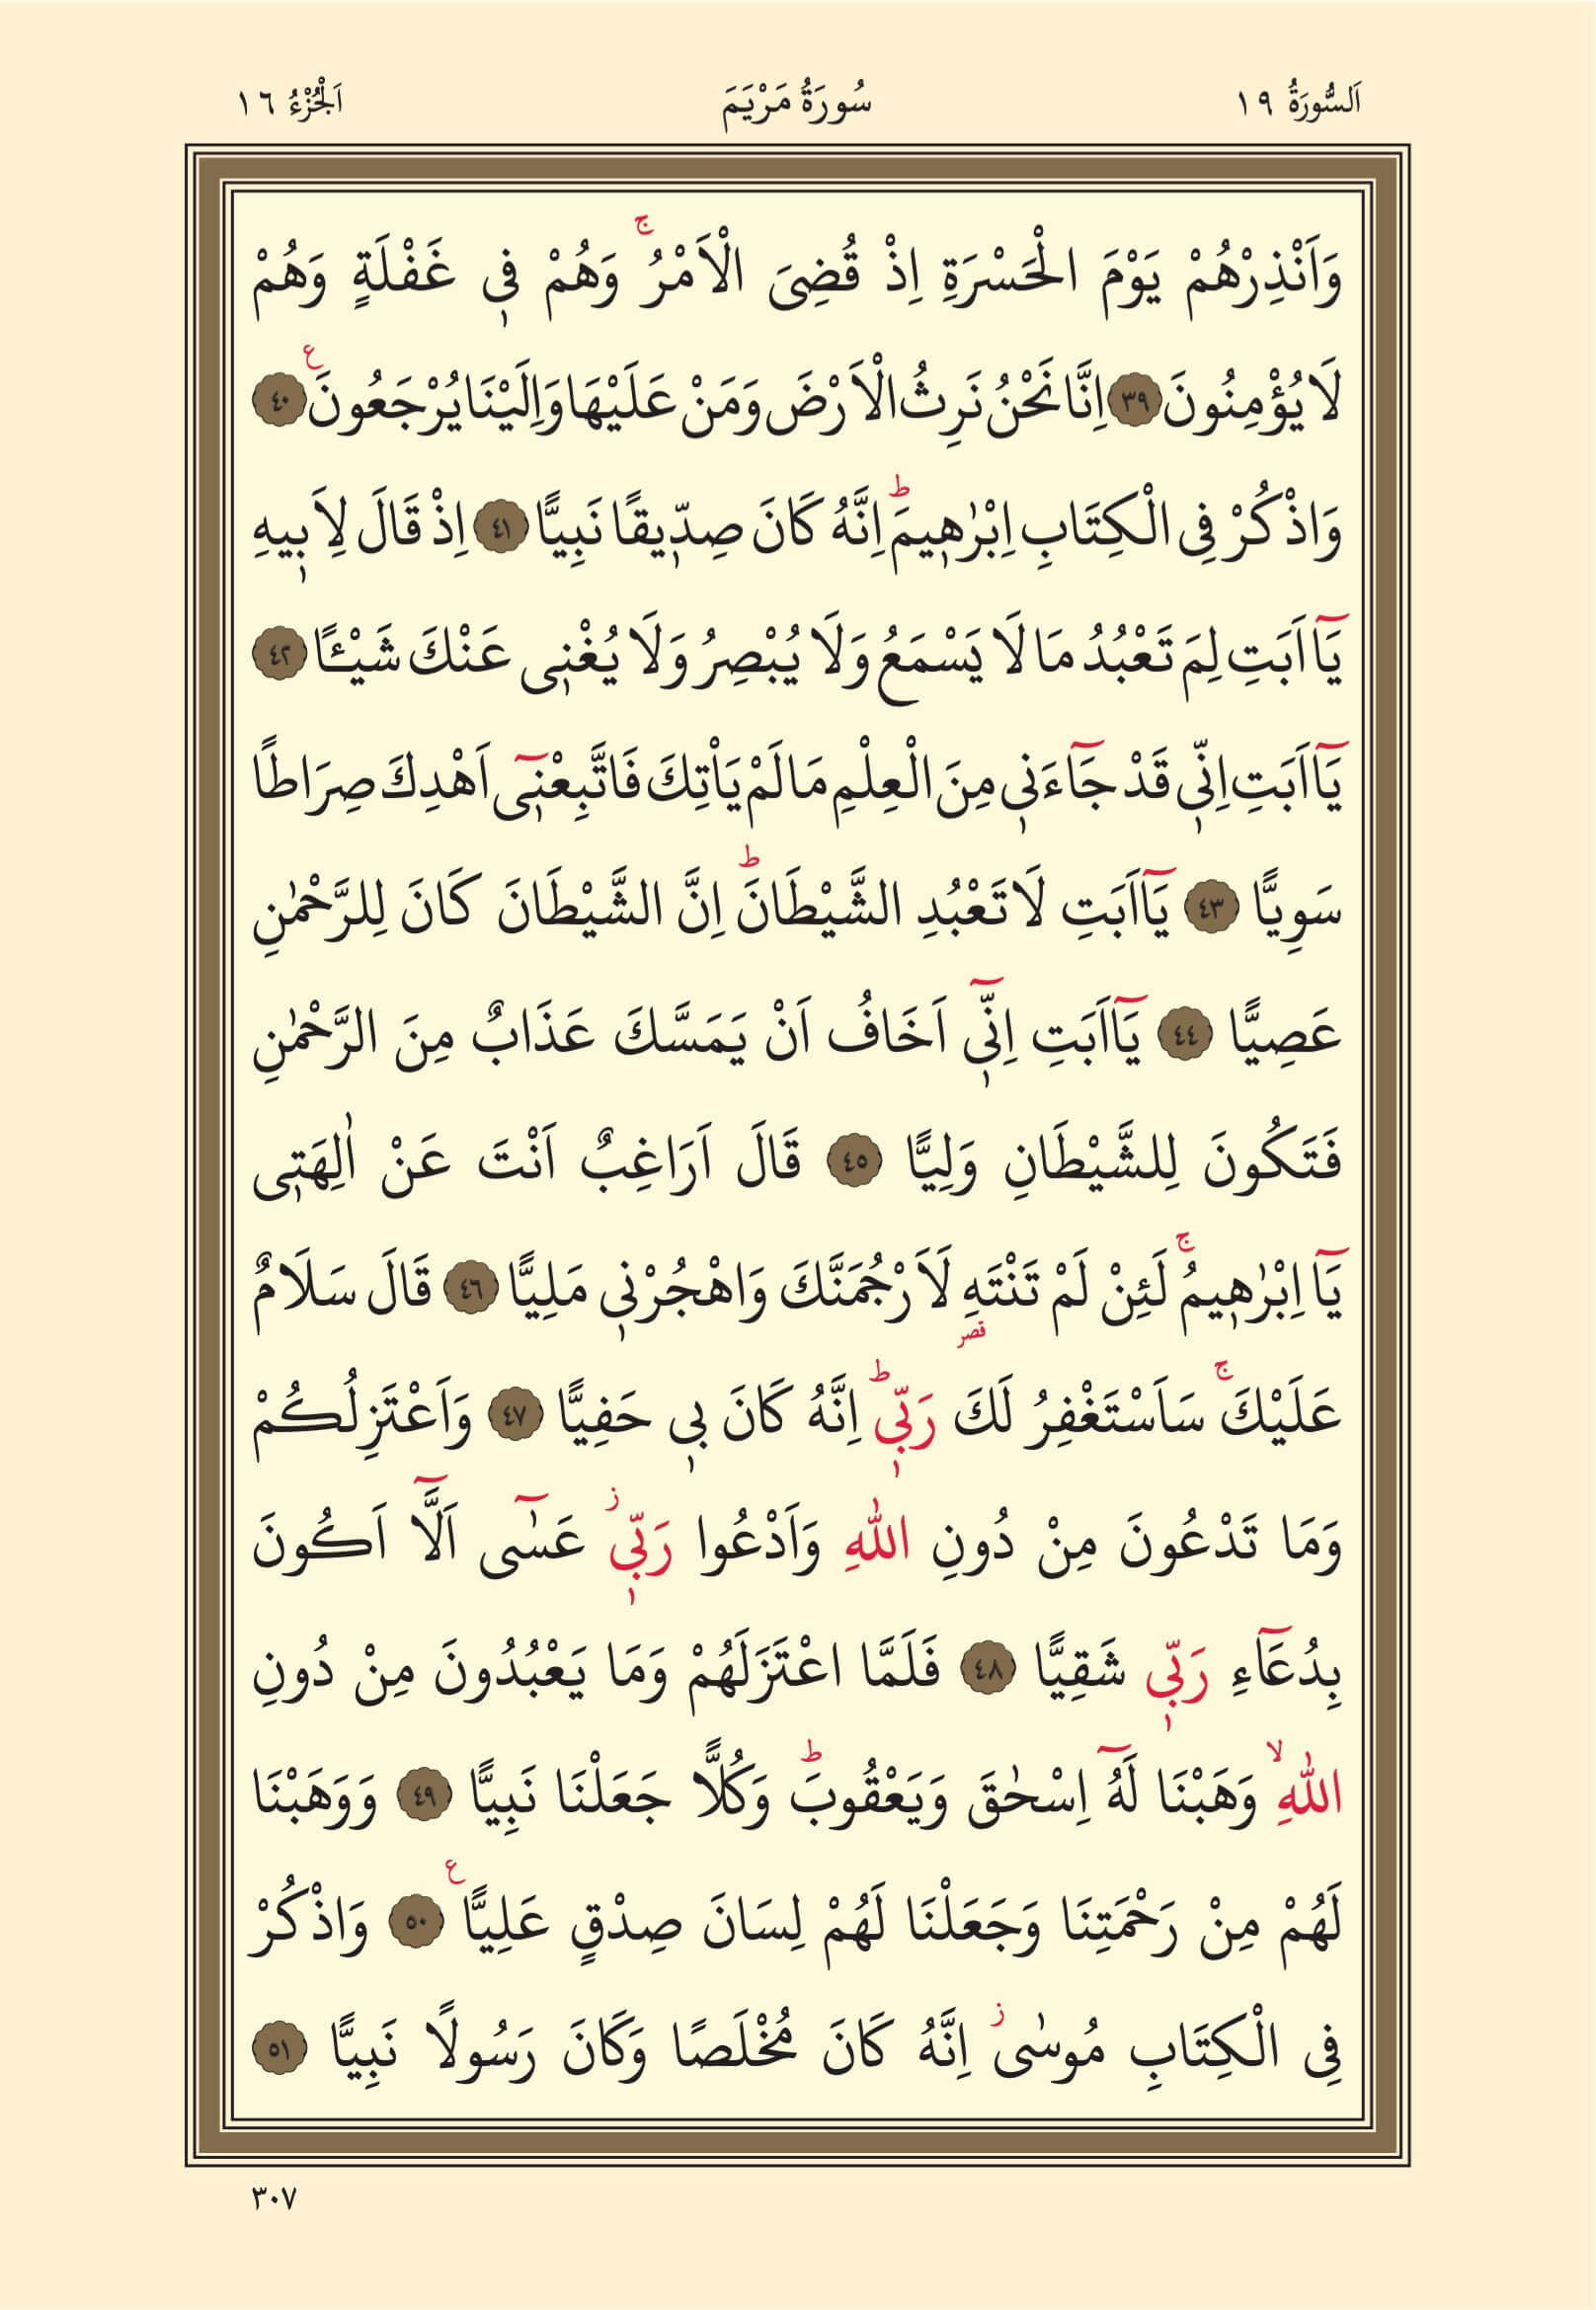 اَلسُّورَةُ ١٩ سُورَةُ مَرْيَمَ اَلْجُزْءُ ١٦
وَاَنْذِرْهُمْ يَوْمَ الْحَسْرَةِ اِذْ قُضِىَ الْاَمْرُۚ وَهُمْ ف۪ى غَفْلَةٍ وَهُمْ
لَا يُؤْمِنُونَ ﴿٣٩﴾ اِنَّا نَحْنُ نَرِثُ الْاَرْضَ وَمَنْ عَلَيْهَا وَاِلَيْنَا يُرْجَعُونَ۟ ﴿٤٠﴾
وَاذْكُرْ فِى الْكِتَابِ اِبْرٰه۪يمَۜ اِنَّهُ كَانَ صِدّ۪يقًا نَبِيًّا ﴿٤١﴾ اِذْ قَالَ لِاَب۪يهِ
يَٓا اَبَتِ لِمَ تَعْبُدُ مَا لَا يَسْمَعُ وَلَا يُبْصِرُ وَلَا يُغْن۪ى عَنْكَ شَيْـًٔا ﴿٤٢﴾
يَٓا اَبَتِ اِنّ۪ى قَدْ جَٓاءَن۪ى مِنَ الْعِلْمِ مَا لَمْ يَاْتِكَ فَاتَّبِعْن۪ٓى اَهْدِكَ صِرَاطًا
سَوِيًّا ﴿٤٣﴾ يَٓا اَبَتِ لَا تَعْبُدِ الشَّيْطَانَۜ اِنَّ الشَّيْطَانَ كَانَ لِلرَّحْمٰنِ
عَصِيًّا ﴿٤٤﴾ يَٓا اَبَتِ اِنّ۪ٓى اَخَافُ اَنْ يَمَسَّكَ عَذَابٌ مِنَ الرَّحْمٰنِ
فَتَكُونَ لِلشَّيْطَانِ وَلِيًّا ﴿٤٥﴾ قَالَ اَرَاغِبٌ اَنْتَ عَنْ اٰلِهَت۪ى
يَٓا اِبْرٰه۪يمُۚ لَئِنْ لَمْ تَنْتَهِ لَاَرْجُمَنَّكَ وَاهْجُرْن۪ى مَلِيًّا ﴿٤٦﴾ قَالَ سَلَامٌ
قصر
عَلَيْكَۚ سَاَسْتَغْفِرُ لَكَ رَبّ۪ىۜ اِنَّهُ كَانَ ب۪ى حَفِيًّا ﴿٤٧﴾ وَاَعْتَزِلُكُمْ
وَمَا تَدْعُونَ مِنْ دُونِ اللّٰهِ وَاَدْعُوا رَبّ۪ىۘ عَسٰٓى اَلَّٓا اَكُونَ
بِدُعَٓاءِ رَبّ۪ى شَقِيًّا ﴿٤٨﴾ فَلَمَّا اعْتَزَلَهُمْ وَمَا يَعْبُدُونَ مِنْ دُونِ
اللّٰهِۙ وَهَبْنَا لَهُٓ اِسْحٰقَ وَيَعْقُوبَۜ وَكُلًّا جَعَلْنَا نَبِيًّا ﴿٤٩﴾ وَوَهَبْنَا
لَهُمْ مِنْ رَحْمَتِنَا وَجَعَلْنَا لَهُمْ لِسَانَ صِدْقٍ عَلِيًّا۟ ﴿٥٠﴾ وَاذْكُرْ
فِى الْكِتَابِ مُوسٰىۘ اِنَّهُ كَانَ مُخْلَصًا وَكَانَ رَسُولًا نَبِيًّا ﴿٥١﴾
٣٠٧